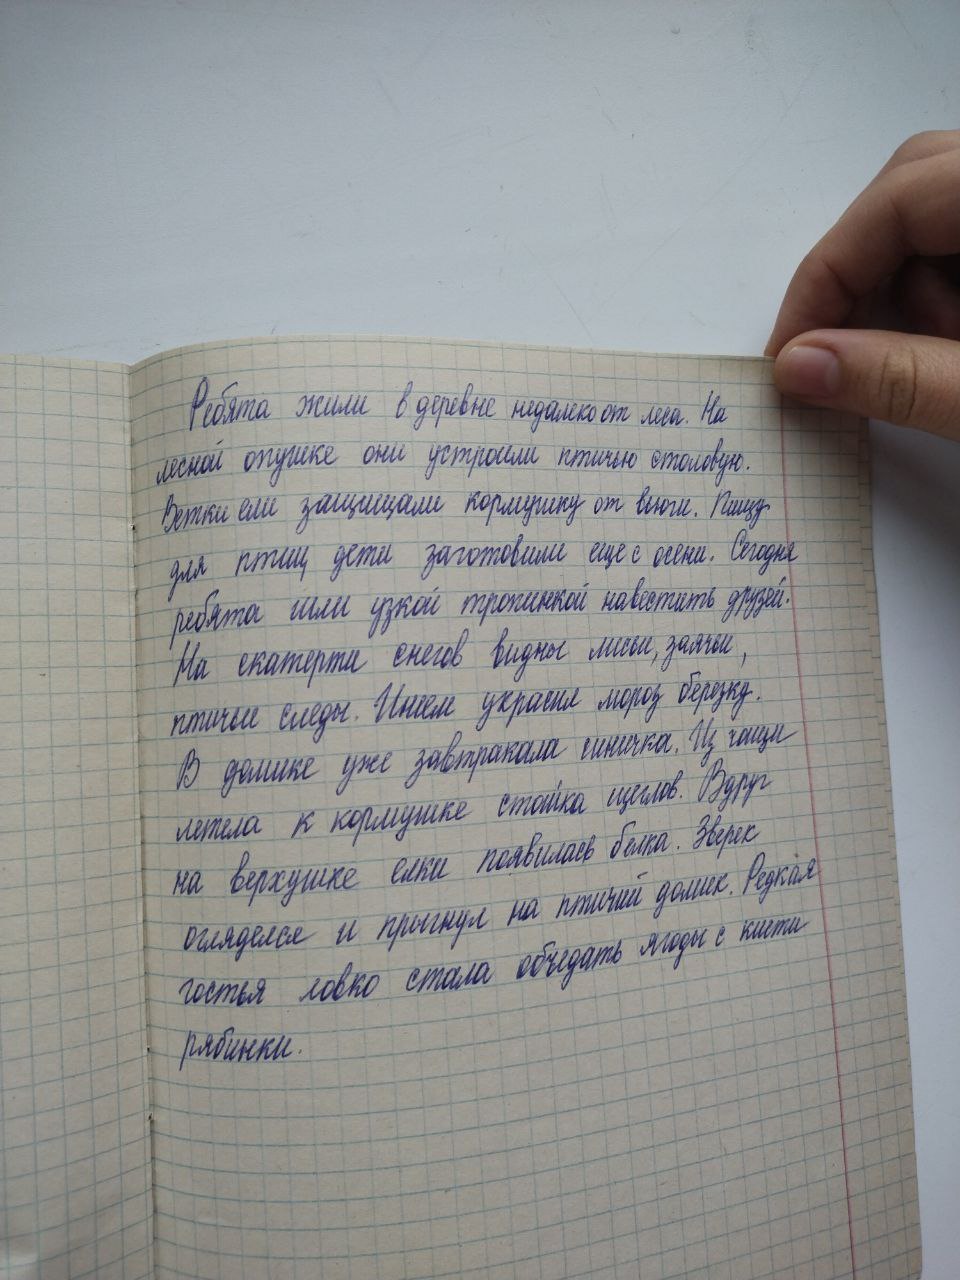 Ребята жили в деревне недалеко от леса. На
лесной опушке они устроили птичью столовую.
Ветки ели защищали кормушку от вьюги. Пищу
для птиц дети заготовили еще с осени. Сегодня
ребята шли узкой тропинкой навестить друзей.
На скатерти снегов видны лисьи, заячьи,
птичьи следы. Инеем украсил мороз березку.
В домике уже завтракала синичка. Из чащи
летела к кормушке стайка щеглов. Вдруг
на верхушке елки появилась белка. Зверек
огляделся и прыгнул на птичий домик. Редкая
гостья ловко стала объедать ягоды с кисти
рябинки.